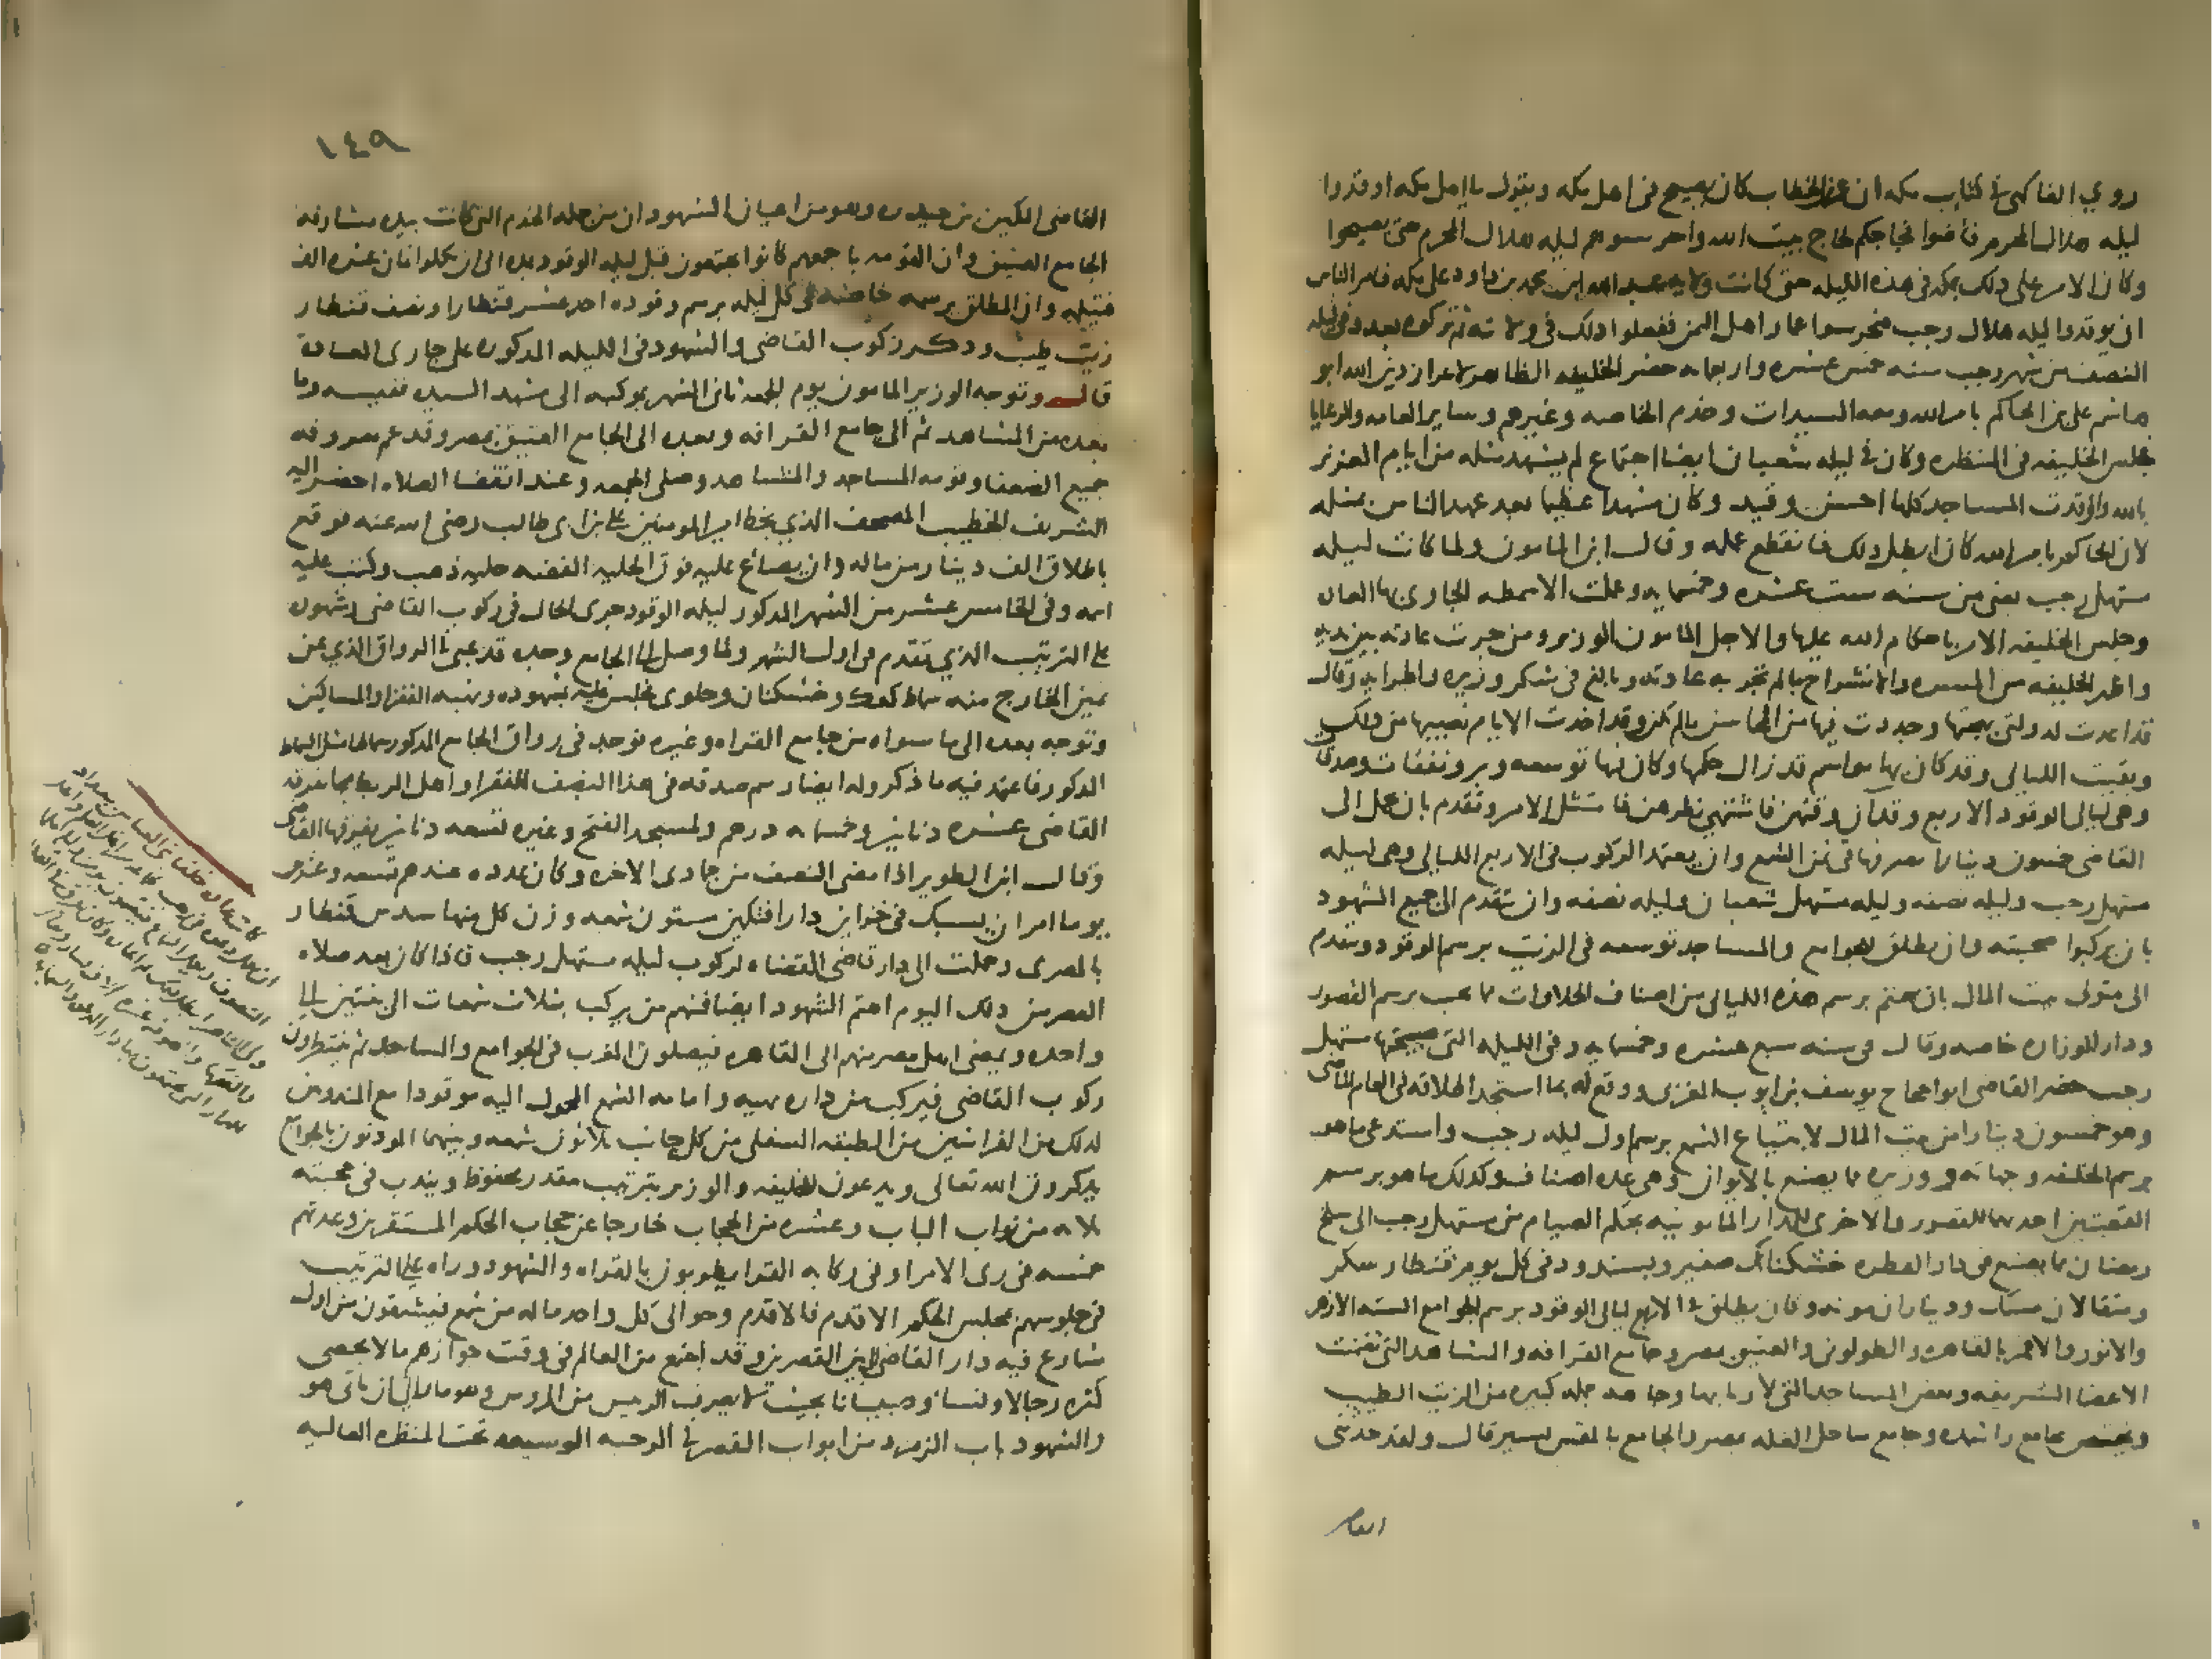 روي الفاكهي في كتاب مكه ان عمر بن الخطاب كان يصيح في اهل مكه ويقول يا اهل مكه اوقدوا
ليله هلال المحرم فأضوا فجاجكم لحاج بيت الله واحرسوهم ليله هلال المحرم حتى يصبحوا
وكان الامر على ذلك بمكه في هذه الليله حتى كانت ولايه عبد الله ابن محمد بن داود على مكه فامر الناس
ان يوقدوا ليله هلال رجب فيحرسوا عمار اهل اليمن ففعلوا ذلك في ولايته ثم تركوه بعد وفي ليله
النصف من شهر رجب سنه خمس عشره واربعمايه حضر الخليفه الظاهر لاعزاز دين الله ابو
هاشم علي بن الحاكم بامر الله ومعه السيدات وخدم الخاصه وغيرهم وساير العامه والرعايا
فجلس الخليفه في المنظره وكان في ليله شعبان ايضا اجتماع لم يشهد مثله من ايام العزيز
بالله واوقدت المساجد كلها احسن وقيد وكان مشهدا عظيما بعد عهد الناس بمثله
لان الحاكم بامر الله كان ابطل ذلك فانقطع عمله وقال ابن المامون ولما كانت ليله
مستهل رجب يعني من سنه ست عشره وخمسمايه وعملت الاسمطه الجاري بها العاده
وجلس الخليفه الامر باحكام الله عليها والاجل المامون الوزير ومن جرت عادته بين يديه
واظهر الخليفه من المسره والانشراح ما لم تجر به عادته وبالغ في شكر وزيره واطرايه وقال
قد اعدت لدولتي بهجتها وجددت فيها من المحاسن ما لم يكن وقد اخذت الايام نصيبها من ذلك
وبقيت الليالي وقد كان بها مواسم قد زال حكمها وكان فيها توسعه وبر ونفقات وصدقات
وهي ليالي الوقود الاربع وقد آن وقتهن فاشتهي نظرهن فامتثل الامر وتقدم بان يحمل الى
القاضي خمسون دينارا يصرفها في ثمن الشمع وان يعتمد الركوب في الاربع الليالي وهي ليله
مستهل رجب وليله نصفه وليله مستهل شعبان وليله نصفه وان يتقدم الى جميع الشهود
بان يركبوا صحبته وان يطلق للجوامع والمساجد توسعه في الزيت برسم الوقود ويتقدم
الى متولي بيت المال بان يهتم برسم هذه الليالي من اصناف الحلاوات مما يجب برسم القصور
ودار الوزاره خاصه وقال في سنه سبع عشره وخمسمايه وفي الليله التي صبيحتها مستهل
رجب حضر القاضي ابو الحجاج يوسف بن ايوب المغربي ووقع له بما استجد اطلاقه في العام الماضي
وهو خمسون دينارا من بيت المال لابتياع الشمع برسم اول ليله رجب واستدعى ما هو
برسم الخليفه وجهاته ووزيره مما يصنع بالايوان وهي عده اصناف وكذلك ما هو برسم
التعبيتين احدهما للقصور والاخرى للدار المامونيه بحكم الصيام من مستهل رجب الى سلخ
رمضان ما يصنع في دار الفطره خشكنانك صغير وبسندود في كل يوم قنطار سكر
ومثقالان مسك وديناران موونه وكان يطلق في الاربع ليالي الوقود برسم الجوامع السته الازهر
والانور والاقمر بالقاهره والطولوني والعتيق بمصر وجامع القرافه والمشاهد التي تضمنت
الاعضا الشريفه وبعض المساجد التي لاربابها وجاهه جمله كبيره من الزيت الطيب
ويختص بجامع راشده وجامع ساحل الغله بمصر والجامع بالمقس يسير قال ولقد حدثني
القاضي
١٤٩
القاضي المكين بن حيدره وهو من اعيان الشهود ان من جمله الخدم التي كانت بيده مشارفه
الجامع العتيق وان القومه باجمعهم كانوا يجتمعون قبل ليله الوقود بمده الى ان يكملوا ثمان عشره الف
فتيله وان المطلق برسمه خاصه في كل ليله برسم وقوده احد عشر قنطارا ونصف قنطار
زيت طيب وذكر ركوب القاضي والشهود في الليله المذكوره على جاري العاده
قال وتوجه الوزير المامون يوم الجمعه ثاني الشهر بموكبه الى مشهد السيده نفيسه وما
بعده من المشاهد ثم الى جامع القرافه وبعده الى الجامع العتيق بمصر وقد عم معروفه
جميع الضعفا وقومه المساجد والمشاهد وصلى الجمعه وعند انقضا الصلاه احضر اليه
الشريف الخطيب المصحف الذي بخط امير المومنين علي بن ابي طالب رضي الله عنه فوقع
باطلاق الف دينار من ماله وان يصاغ عليه فوق الحليه الفضه حليه ذهب وكتب عليه
اسمه وفي الخامس عشر من الشهر المذكور ليله الوقود جرى الحال في ركوب القاضي وشهوده
على الترتيب الذي تقدم في اول الشهر ولما وصل الى الجامع وجده قد عبي في الرواق الذي عن
يمين الخارج منه سماط كعك وخشكنان وحلوى فجلس عليه بشهوده ونهبه الفقرا والمساكين
وتوجه بعده الى ما سواه من جامع القرافه وغيره فوجد في رواق الجامع المذكور سماطا مثل السماط
المذكور فاعتمد فيه ما ذكر وله ايضا رسم صدقه في هذا النصف للفقرا واهل الربط مما يفرقه
القاضي عشره دنانير وخمسمايه درهم ولمسجد الفتح وغيره تسعه دنانير يفرقها القاضي
وقال ابن الطوير اذا مضى النصف من جمادى الاخره وكان عدده عندهم تسعه وعشرين
يوما امر ان يسبك في خزاين دار افتكين ستون شمعه وزن كل منها سدس قنطار
بالمصري وحملت الى دار قاضي القضاه لركوب ليله مستهل رجب فاذا كان بعد صلاه
العصر من ذلك اليوم اهتم الشهود ايضا فمنهم من يركب بثلاث شمعات الى ثنتين الى
واحده ويمضي اهل مصر منهم الى القاهره فيصلون المغرب في الجوامع والمساجد ثم ينتظرون
ركوب القاضي فيركب من داره بهيه وامامه الشمع المحمول اليه موقودا مع المندوبين
لذلك من الفراشين من الطبقه السفلى من كل جانب ثلاثون شمعه وبينهما الموذنون بالجوامع
يذكرون الله تعالى ويدعون للخليفه والوزير بترتيب مقدر محفوظ ويندب في حجبته
ثلاثه من نواب الباب وعشره من الحجاب خارجا عن حجاب الحكم المستقرين وعدتهم
خمسه في زي الامرا وفي ركابه القرا يطربون بالقراه والشهود وراه على الترتيب
في جلوسهم بمجلس الحكم الاقدم فالاقدم وحوالي كل واحد ماله من شمع فيشقون من اول
شارع فيه دار القاضي الى بين القصرين وقد اجتمع من العالم في وقت جوازهم ما لا يحصى
كثره رجالا ونساء وصبيانا بحيث لا يعرف الرييس من المروس وهو مار الى ان ياتي هو
والشهود باب الزمرد من ابواب القصر في الرحبه الوسيعه تحت المنظره العاليه